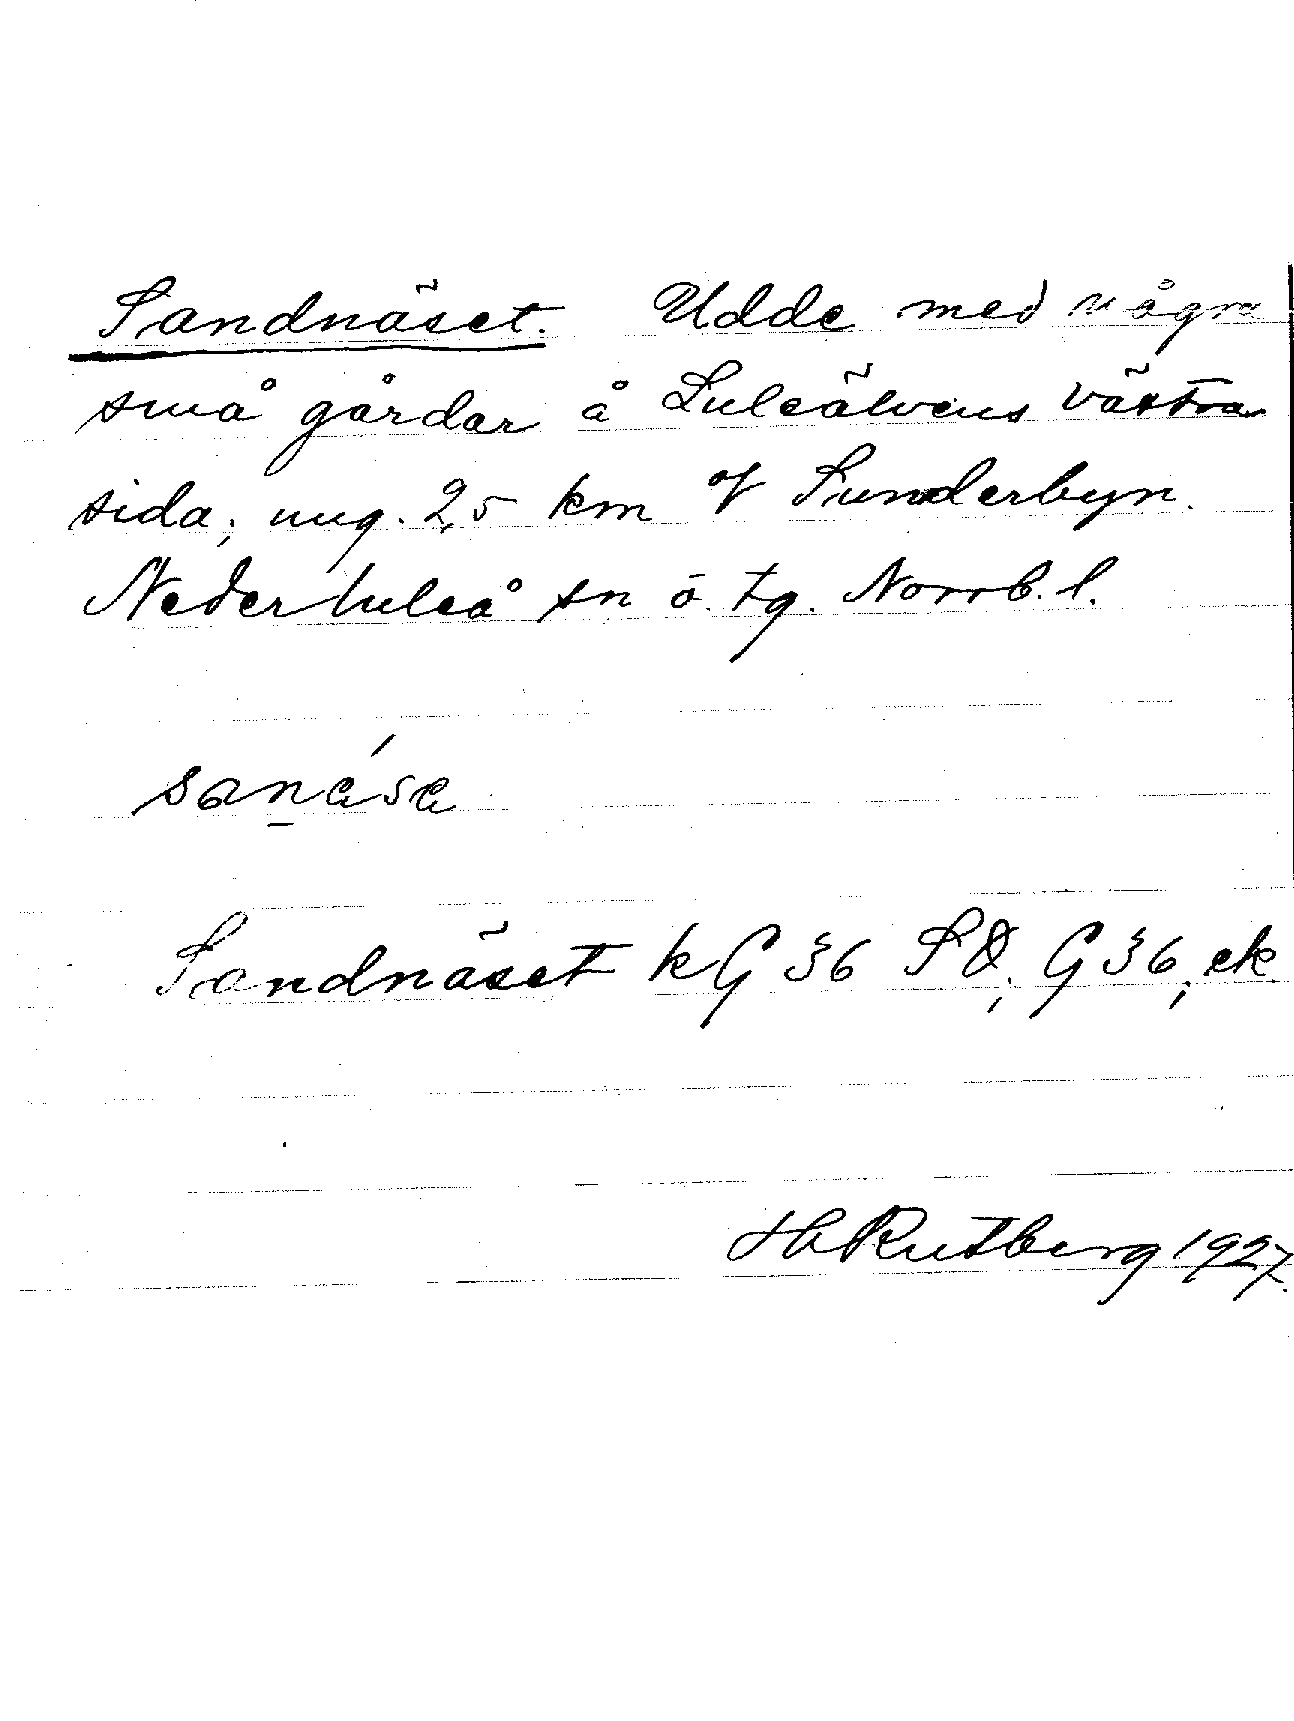 Sandnäset. Udde med några
små gårdar å Luleälvens västra
sida, ung. 2,5 km Sunderbyn.
Nederluleå sn ö. tg. Norrb. l.
Sandnäset kG 36 SO, G 36, ek
H Rutberg 1927.